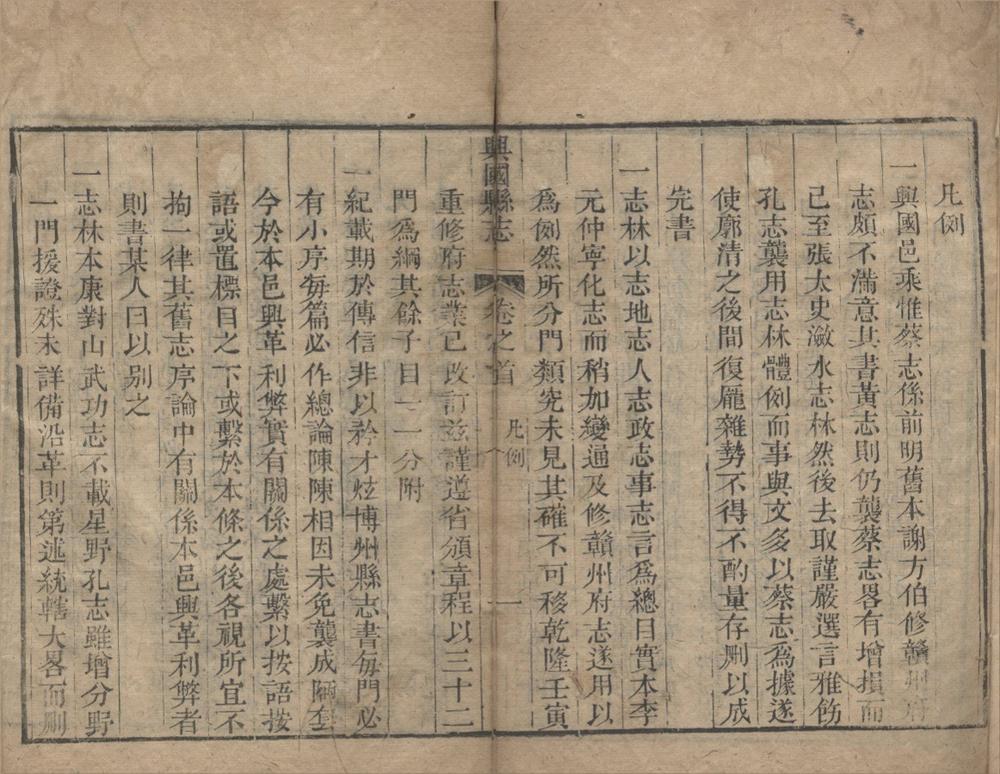 凡例
一興國邑乘惟蔡志係前明舊本謝方伯修贛州府
志頗不滿意其書黃志則仍襲蔡志畧有增損而
已至張太史瀲水志林然後去取謹嚴選言雅飭
孔志襲用志林體例而事與文多以蔡志爲據遂
使廓清之後間復龎雜勢不得不酌量存删以成
完書
一志林以志地志人志政志事志言爲總目實本李
元仲寧化志而稍加變通及修贛州府志遂用以
爲例然所分門類究未見其確不可移乾隆壬寅
興國縣志
卷之首
凡例
一
重修府志業已改訂兹謹遵省頒章程以三十二
門爲綱其餘子目一一分附
一紀載期於傳信非以矜才炫博州縣志書每門必
有小序每篇必作總論陳陳相因未免襲成陋套
今於本邑興革利弊實有關係之處繫以按語按
語或置標目之下或繫於本條之後各視所宜不
拘一律其舊志序論中有關係本邑興革利弊者
則書某人曰以别之
一志林本康對山武功志不載星野孔志雖增分野
一門援證殊未詳備沿革則第述統轄大畧而删